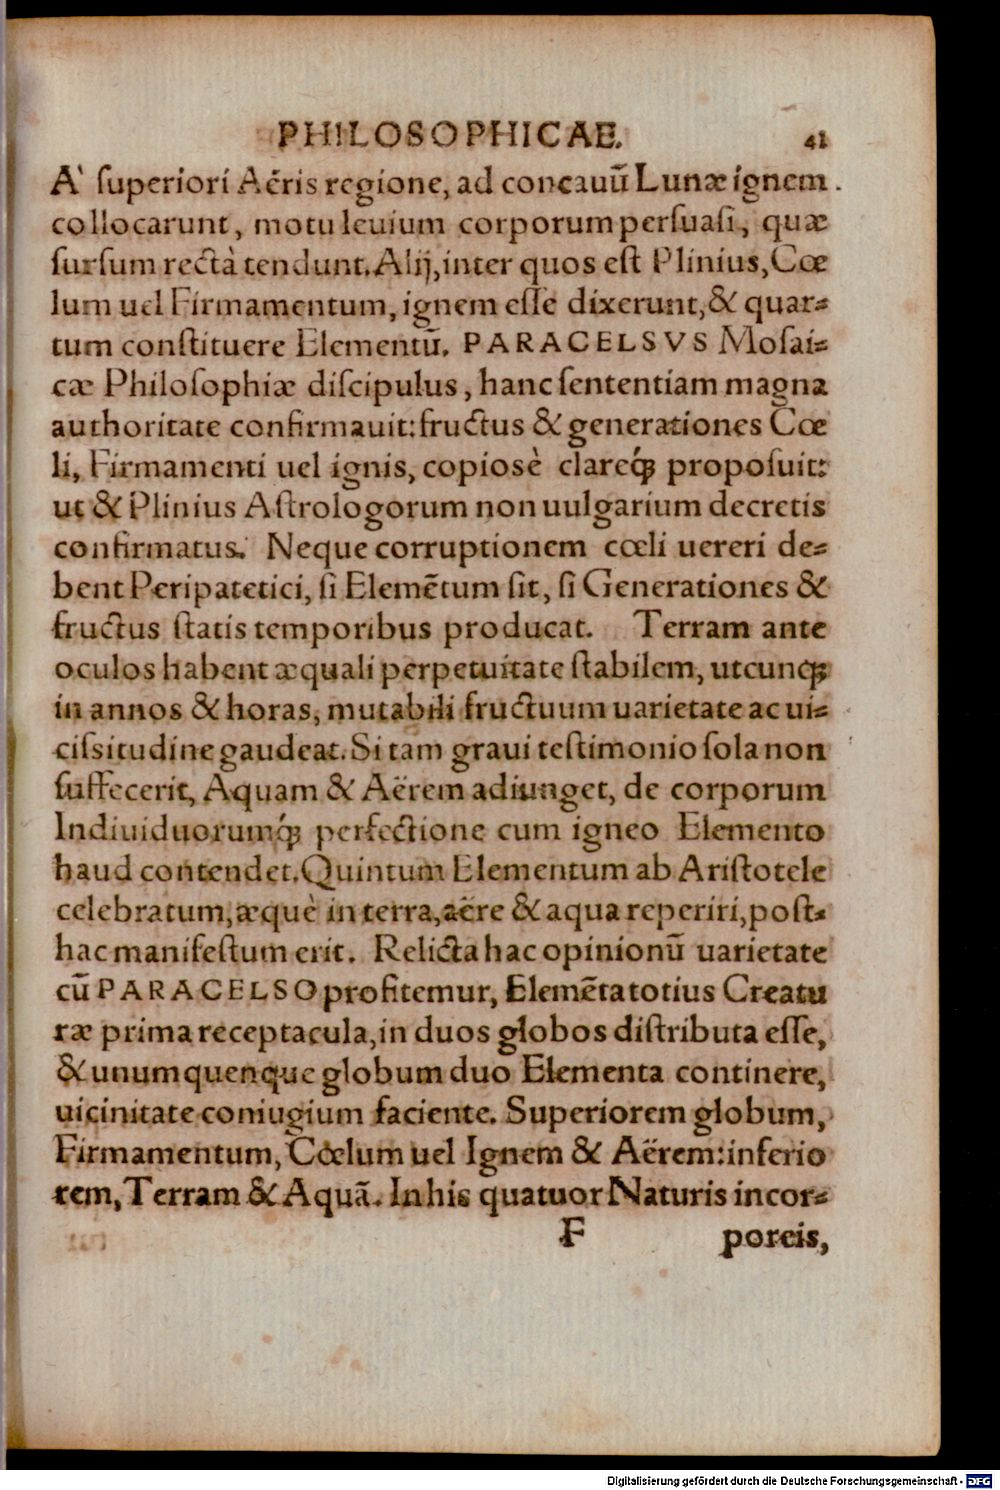 PHILOSOPHICAE. 41
A' ſuperiori Aëris regione, ad concauũ Lunæ ignem.
collocarunt, motu leuium corporum perſuaſi, quæ
ſurſum rectà tendunt. Alij, inter quos eſt Plinius, Cœ
lum uel Firmamentum, ignem eſſe dixerunt, & quar=
tum conſtituere Elementũ. PARACELSVS Moſai=
cæ Philoſophiæ diſcipulus, hanc ſententiam magna
authoritate confirmauit: fructus & generationes Cœ
li, Firmamenti uel ignis, copioſè clareq́ꝫ propoſuit:
ut & Plinius Aſtrologorum non uulgarium decretis
confirmatus. Neque corruptionem cœli uereri de=
bent Peripatetici, ſi Elemẽtum ſit, ſi Generationes &
fructus ſtatis temporibus producat. Terram ante
oculos habent æquali perpetuitate ſtabilem, utcunqꝫ
in annos & horas, mutabili fructuum uarietate ac ui=
ciſsitudine gaudeat. Si tam graui teſtimonio ſola non
ſuffecerit, Aquam & Aërem adiunget, de corporum
Indiuiduorumq́ꝫ perfectione cum igneo Elemento
haud contendet. Quintum Elementum ab Ariſtotele
celebratum, æquè in terra, aëre & aqua reperiri, poſt=
hac manifeſtum erit. Relicta hac opinionũ uarietate
cũ PARACELSO profitemur, Elemẽta totius Creatu
ræ prima receptacula, in duos globos diſtributa eſſe,
& unumquenque globum duo Elementa continere,
uicinitate coniugium faciente. Superiorem globum,
Firmamentum, Cœlum uel Ignem & Aërem: inferio
rem, Terram & Aquã. In his quatuor Naturis incor=
F poreis,
Digitalisierung gefördert durch die Deutsche Forschungsgemeinschaft - DFG